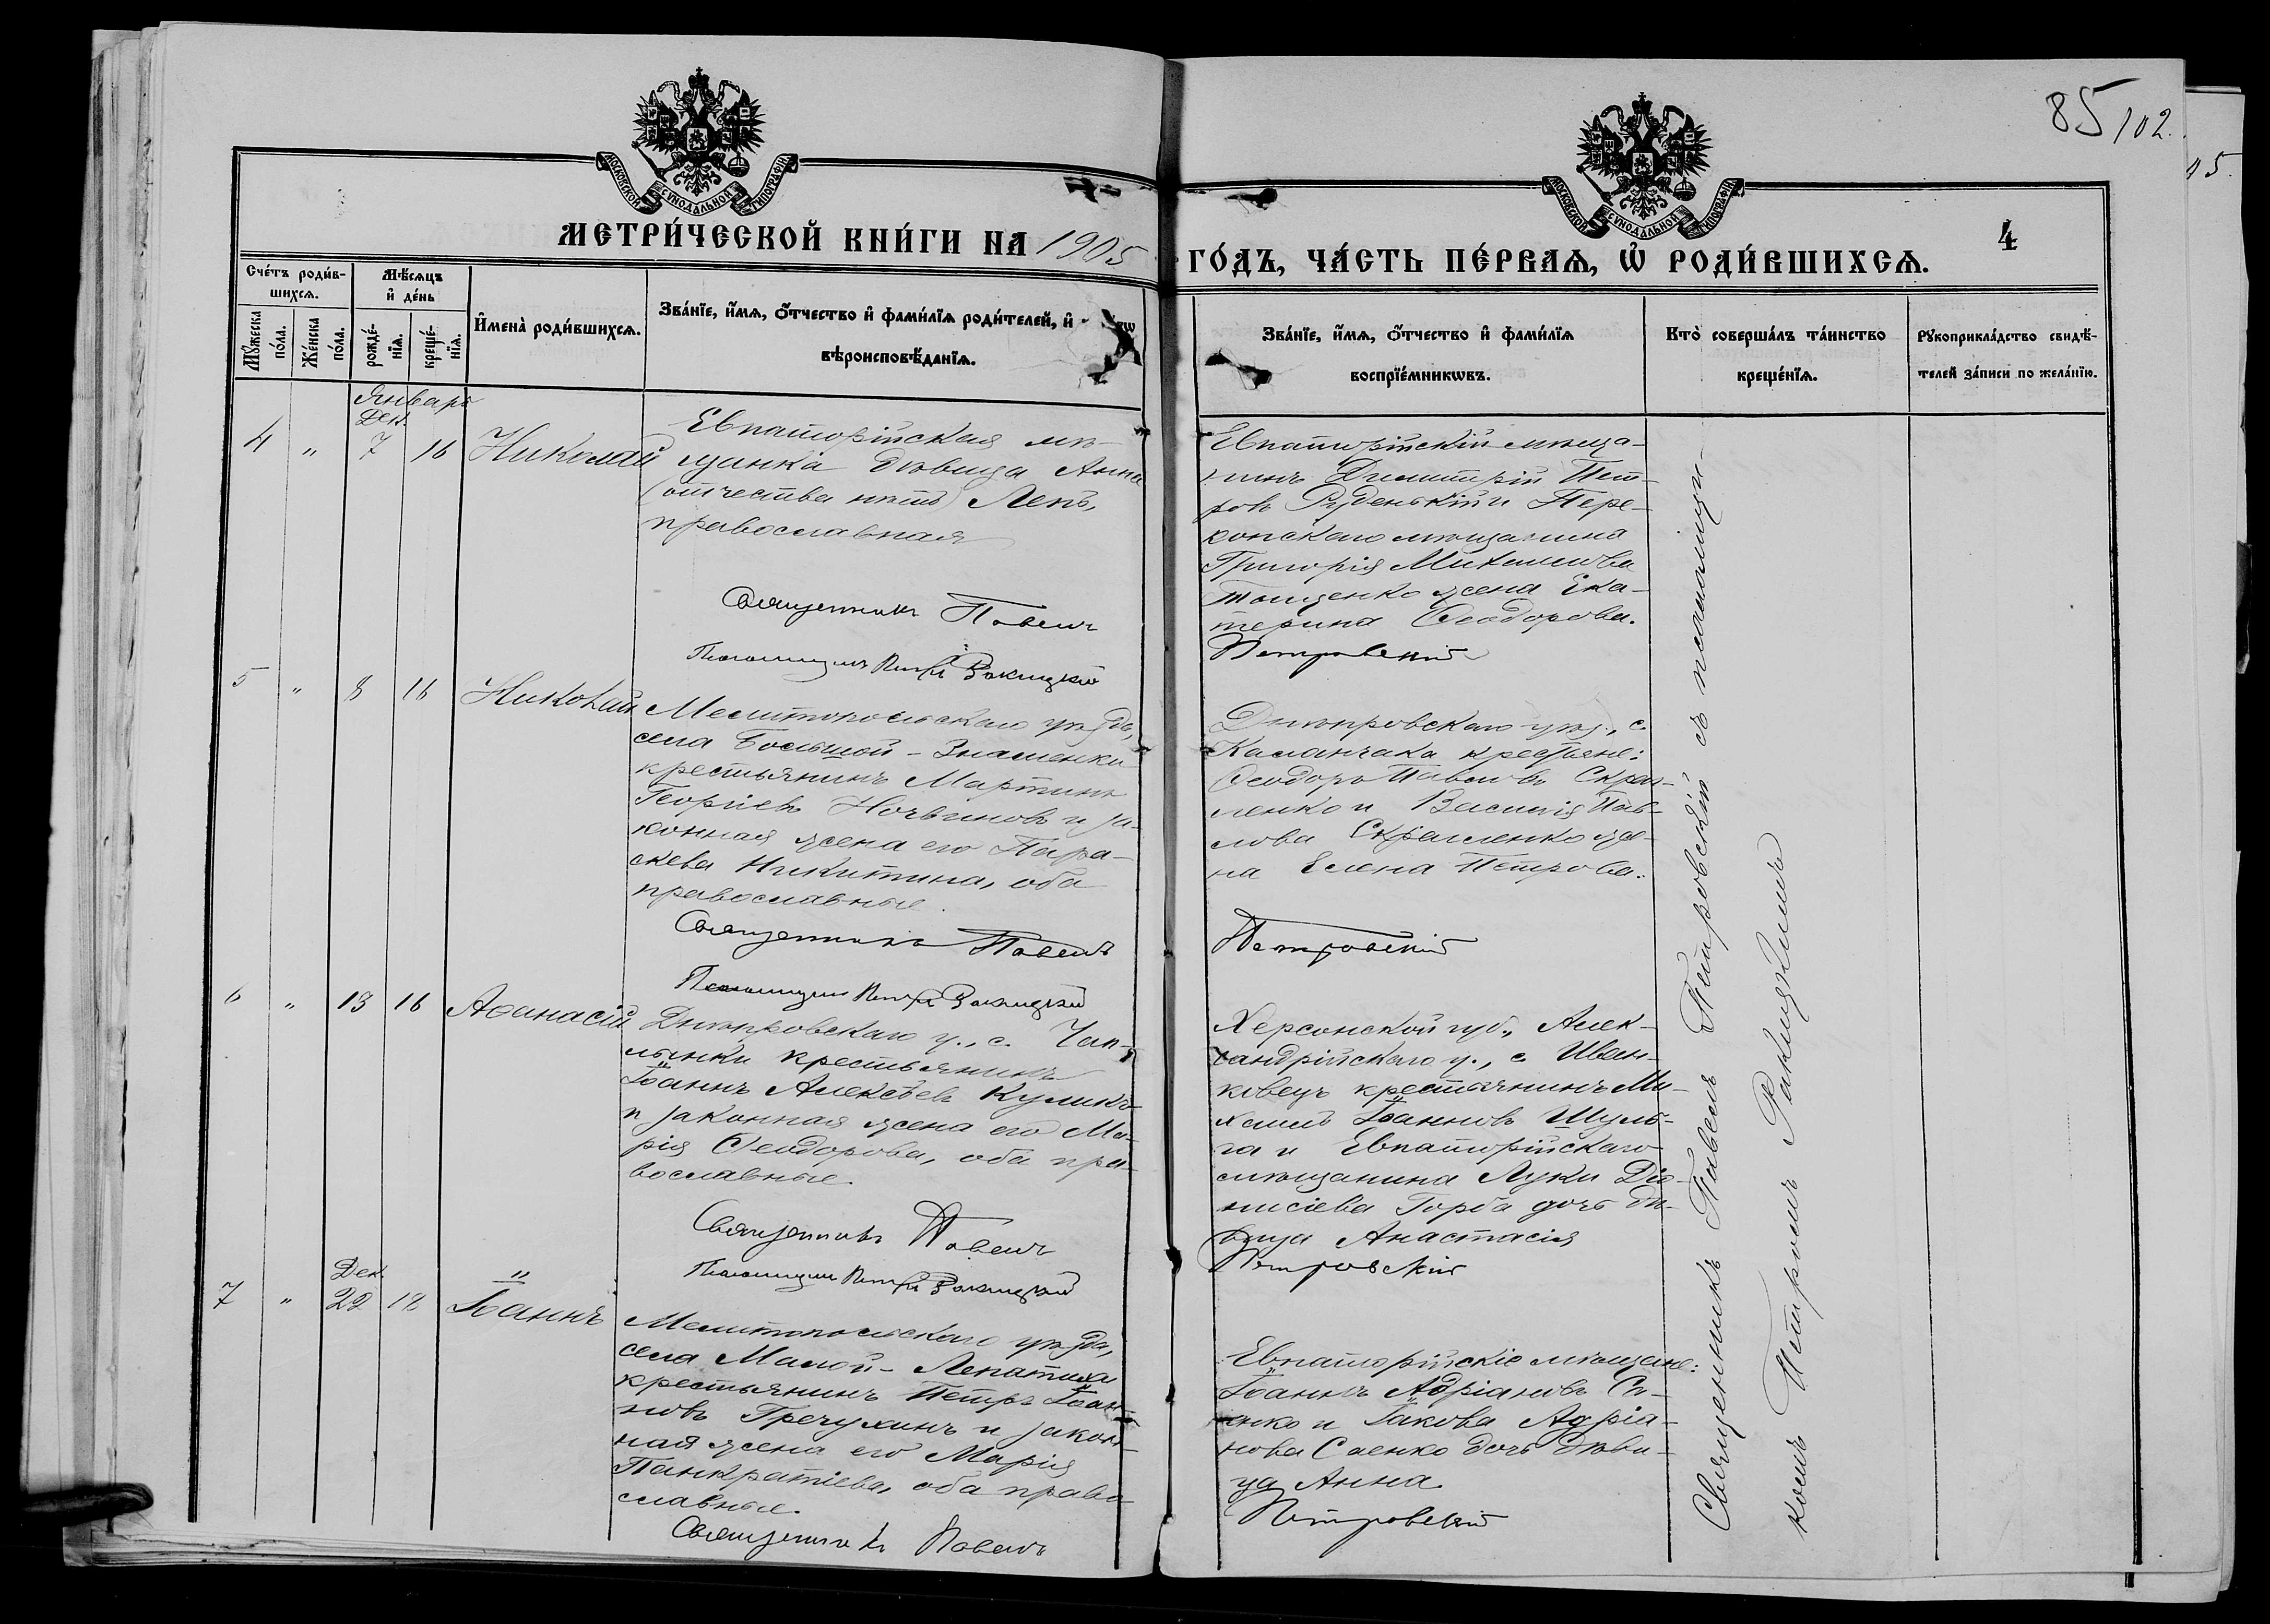 85/102.
15.
МОСКОВСКОЙ СѴНОДАЛЬНОЙ ТИПОГРАФІИ
МОСКОВСКОЙ СѴНОДАЛЬНОЙ ТИПОГРАФІИ
МЕТРИ́ЧЕСКОЙ КНИ́ГИ НА 1905
ГО́ДЪ, ЧА́СТЬ ПЕ́РВАѦ, Ѡ҆ РОДИ́ВШИХСѦ.
4
Сче́тъ роди́в-
шихсѧ.
Мѣ́сѧцъ
и҆ де́нь
Мꙋ́жеска
по́ла.
Же́нска
по́ла.
рожде́-
нїѧ.
креще́-
нїѧ.
И҆мена̀ роди́вшихсѧ.
Зва́нїе, и҆́мѧ, ѻ҆́тчество и҆ фами́лїѧ роди́телей, и҆
вѣроисповѣ́данїѧ.
Зва́нїе, и҆́мѧ, ѻ҆́тчество и҆ фами́лїѧ
воспрїе́мникѡвъ.
Кто̀ соверша́лъ та́инство
креще́нїѧ.
Рꙋкоприкла́дство свидѣ́-
телей за́писи по жела́нїю.
Январь
Дек.
4 " 7 16 Николай
Евпаторійская мѣ-
щанка дѣвица Анна
(отчества нѣтъ) Лепъ,
православная
Священникъ Павелъ
Псаломщикъ Петръ Ракицкій
Евпаторійскій мѣща-
нинъ Димитрій Пет-
ровъ Руденькій и Пере-
копскаго мѣщанина
Григорія Михаилова
Тощенко жена Ека-
терина Ѳеодорова.
Петровскій
5 " 8 16 Николай
Мелитопольскаго уѣзда,
села Большой-Знаменки
крестьянинъ Мартинъ
Георгіевъ Ночвиновъ и за-
конная жена его Пара-
скева Никитина, оба
православные.
Священникъ Павелъ
Псаломщикъ Петръ Ракицкій
Днѣпровскаго уѣз., с.
Каланчака крестьяне:
Ѳеодоръ Павловъ Скрип-
ленко и Василія Пав-
лова жe-
на Елена Петрова.
Петровскій
6 " 13 16 Аѳанасій
Днѣпровскаго у., с. Чап-
лынки крестьянинъ
Іоаннъ Алексѣевъ Куликъ
и законная жена его Ма-
рія Ѳеодорова, оба пра-
вославные.
Священникъ Павелъ
Псаломщикъ Петръ Ракицкій
Херсонской губ., Алек-
сандрійскаго у., с. Иван-
ковецъ крестьянинъ Ми-
хаилъ Іоанновъ Шуль-
га и Евпаторійскаго
мѣщанина Луки Діо-
нисіева Горба дочь дѣ-
вица Анастасія
Петровскій
Дек.
7 " 22 18 Іоаннъ
Мелитопольскаго уѣзда,
села Малой-Лепатихи
крестьянинъ Петръ Іоан-
новъ Гречухинъ и закон-
ная жена его Марія
Панкратіева, оба право-
славные.
Священникъ Павелъ
Евпаторійскіе мѣщане:
Іоаннъ Адріановъ Са-
енко и Іакова Адріа-
нова Саенко дочь дѣви-
ца Анна
Петровскій
Священникъ Павелъ Петровскій съ псаломщи-
комъ Петромъ Ракицкимъ